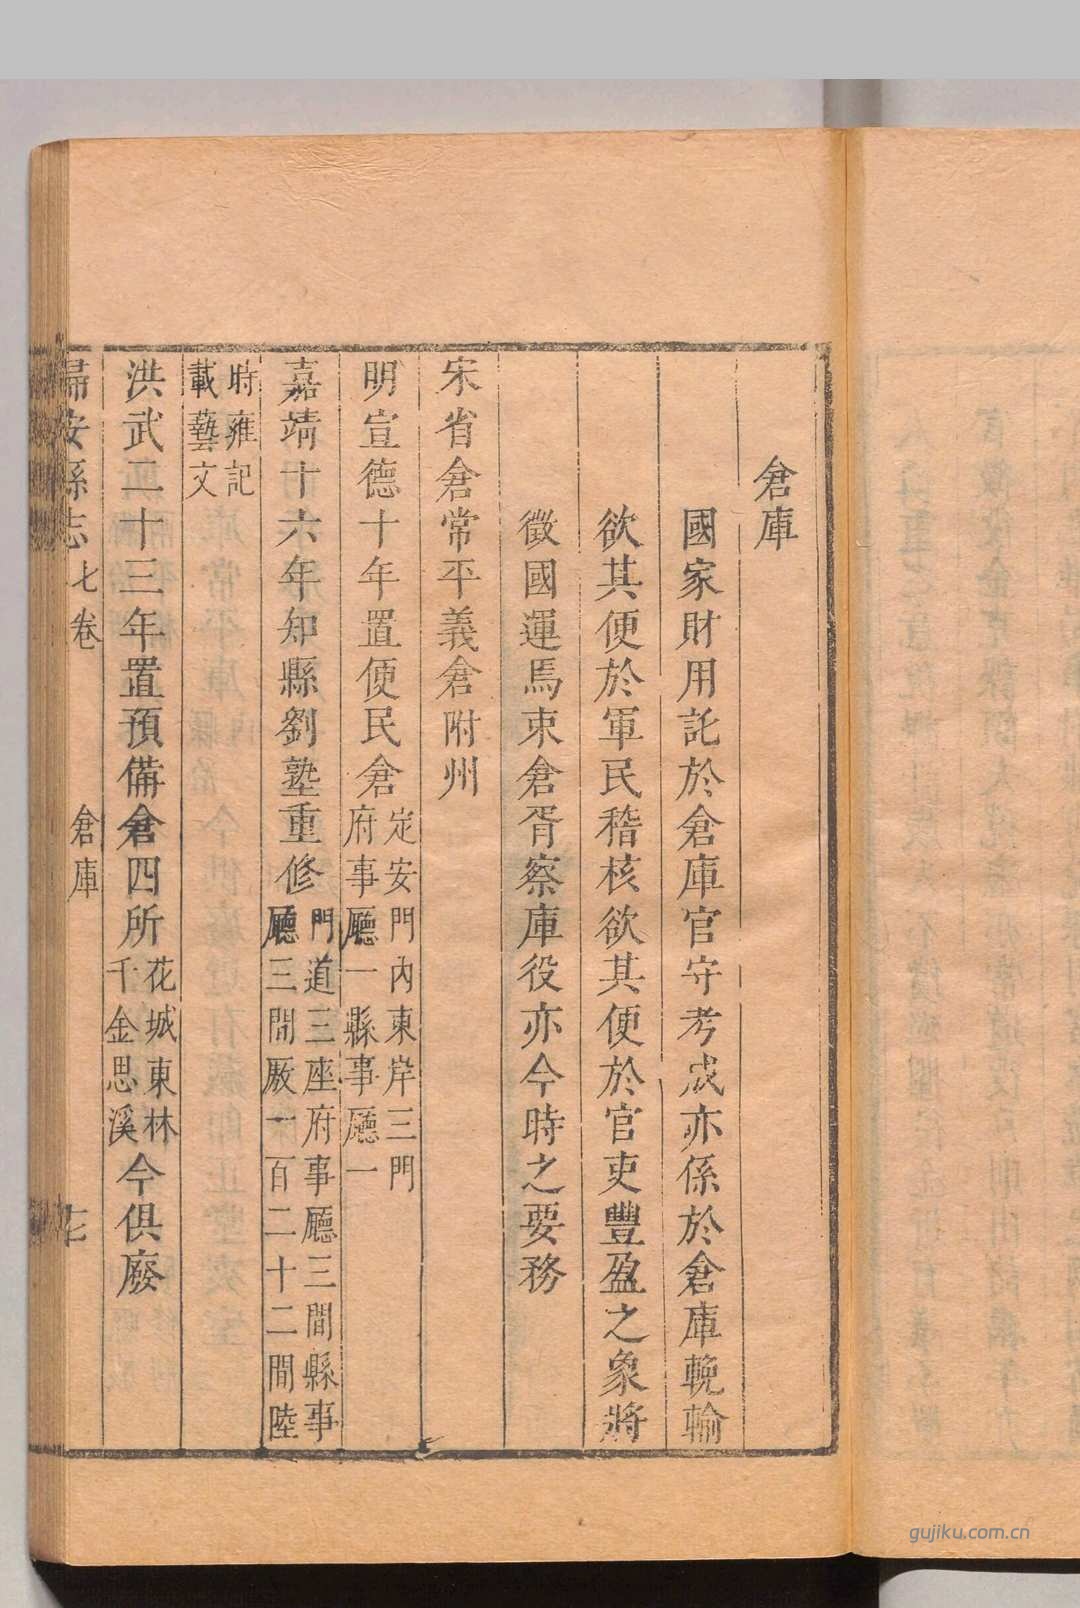 倉庫
國家財用託於倉庫官守考成亦係於倉庫輓輸
欲其便於軍民稽核欲其便於官吏豐盈之象將
徵國運焉束倉胥察庫役亦今時之要務
宋省倉常平義倉附州
明宣德十年置便民倉定安門內東岸三門
府事廳一縣事廳一
嘉靖十六年知縣劉塾重修門道三座府事廳三間縣事
廳三間廒一百二十二間陸
時雍記
載藝文
洪武二十三年置預備倉四所花城東林
千金思溪今俱廢
歸安縣志 七卷 倉庫 七
gujiku.com.cn